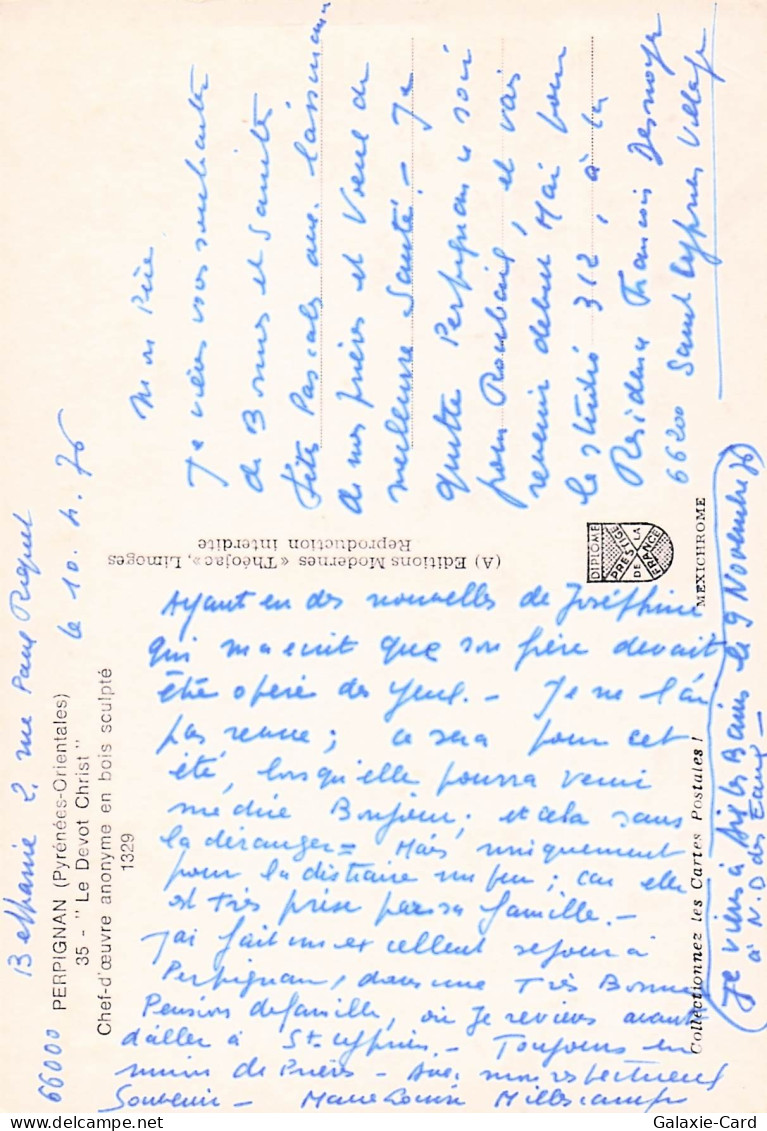 Bethanie 2, rue Paul Riquet
66000
le 10.4.76
PERPIGNAN (Pyrénées-Orientales)
35 - " Le Devot Christ "
Chef-d'œuvre anonyme en bois sculpté
1329
Mon Père
Je viens vous souhaiter
de Bonnes et Saintes
fêtes Pascales avec l'assurance
de mes prières et Voeux de
meilleure Santé. - Je
quitte Perpignan ce soir
pour Roubaix, et vais
revenir debut Mai pour
le studio 312, à la
Residence François Desnoyer
66200 Saint Cyprien Village
Ayant eu des nouvelles de Joséphine
qui m'a ecrit que son frère devait
être opéré des yeux. - Je ne l'ai
pas revue ; ce sera pour cet
été, lorsqu'elle pourra venir
me dire Bonjour ; et cela sans
la déranger = Mais uniquement
pour la distraire un peu ; car elle
est très prise par sa famille. -
J'ai fait un excellent sejour à
Perpignan, dans une Très Bonne
Pension de famille, où je reviens avant
d'aller à St. Cyprien. - Toujours en
union de Prières - Avec mon respectueux
Souvenir - Marie Louise Millescamps
(Je viens à Aix les Bains le 9 Novembre 76)
à N. D des Eaux -
(A) Editions Modernes « Théojac », Limoges
Reproduction interdite
DIPLOME
PRESTIGE
DE
LA
FRANCE
MEXICHROME
Collectionnez les Cartes Postales !
Galaxie-Card